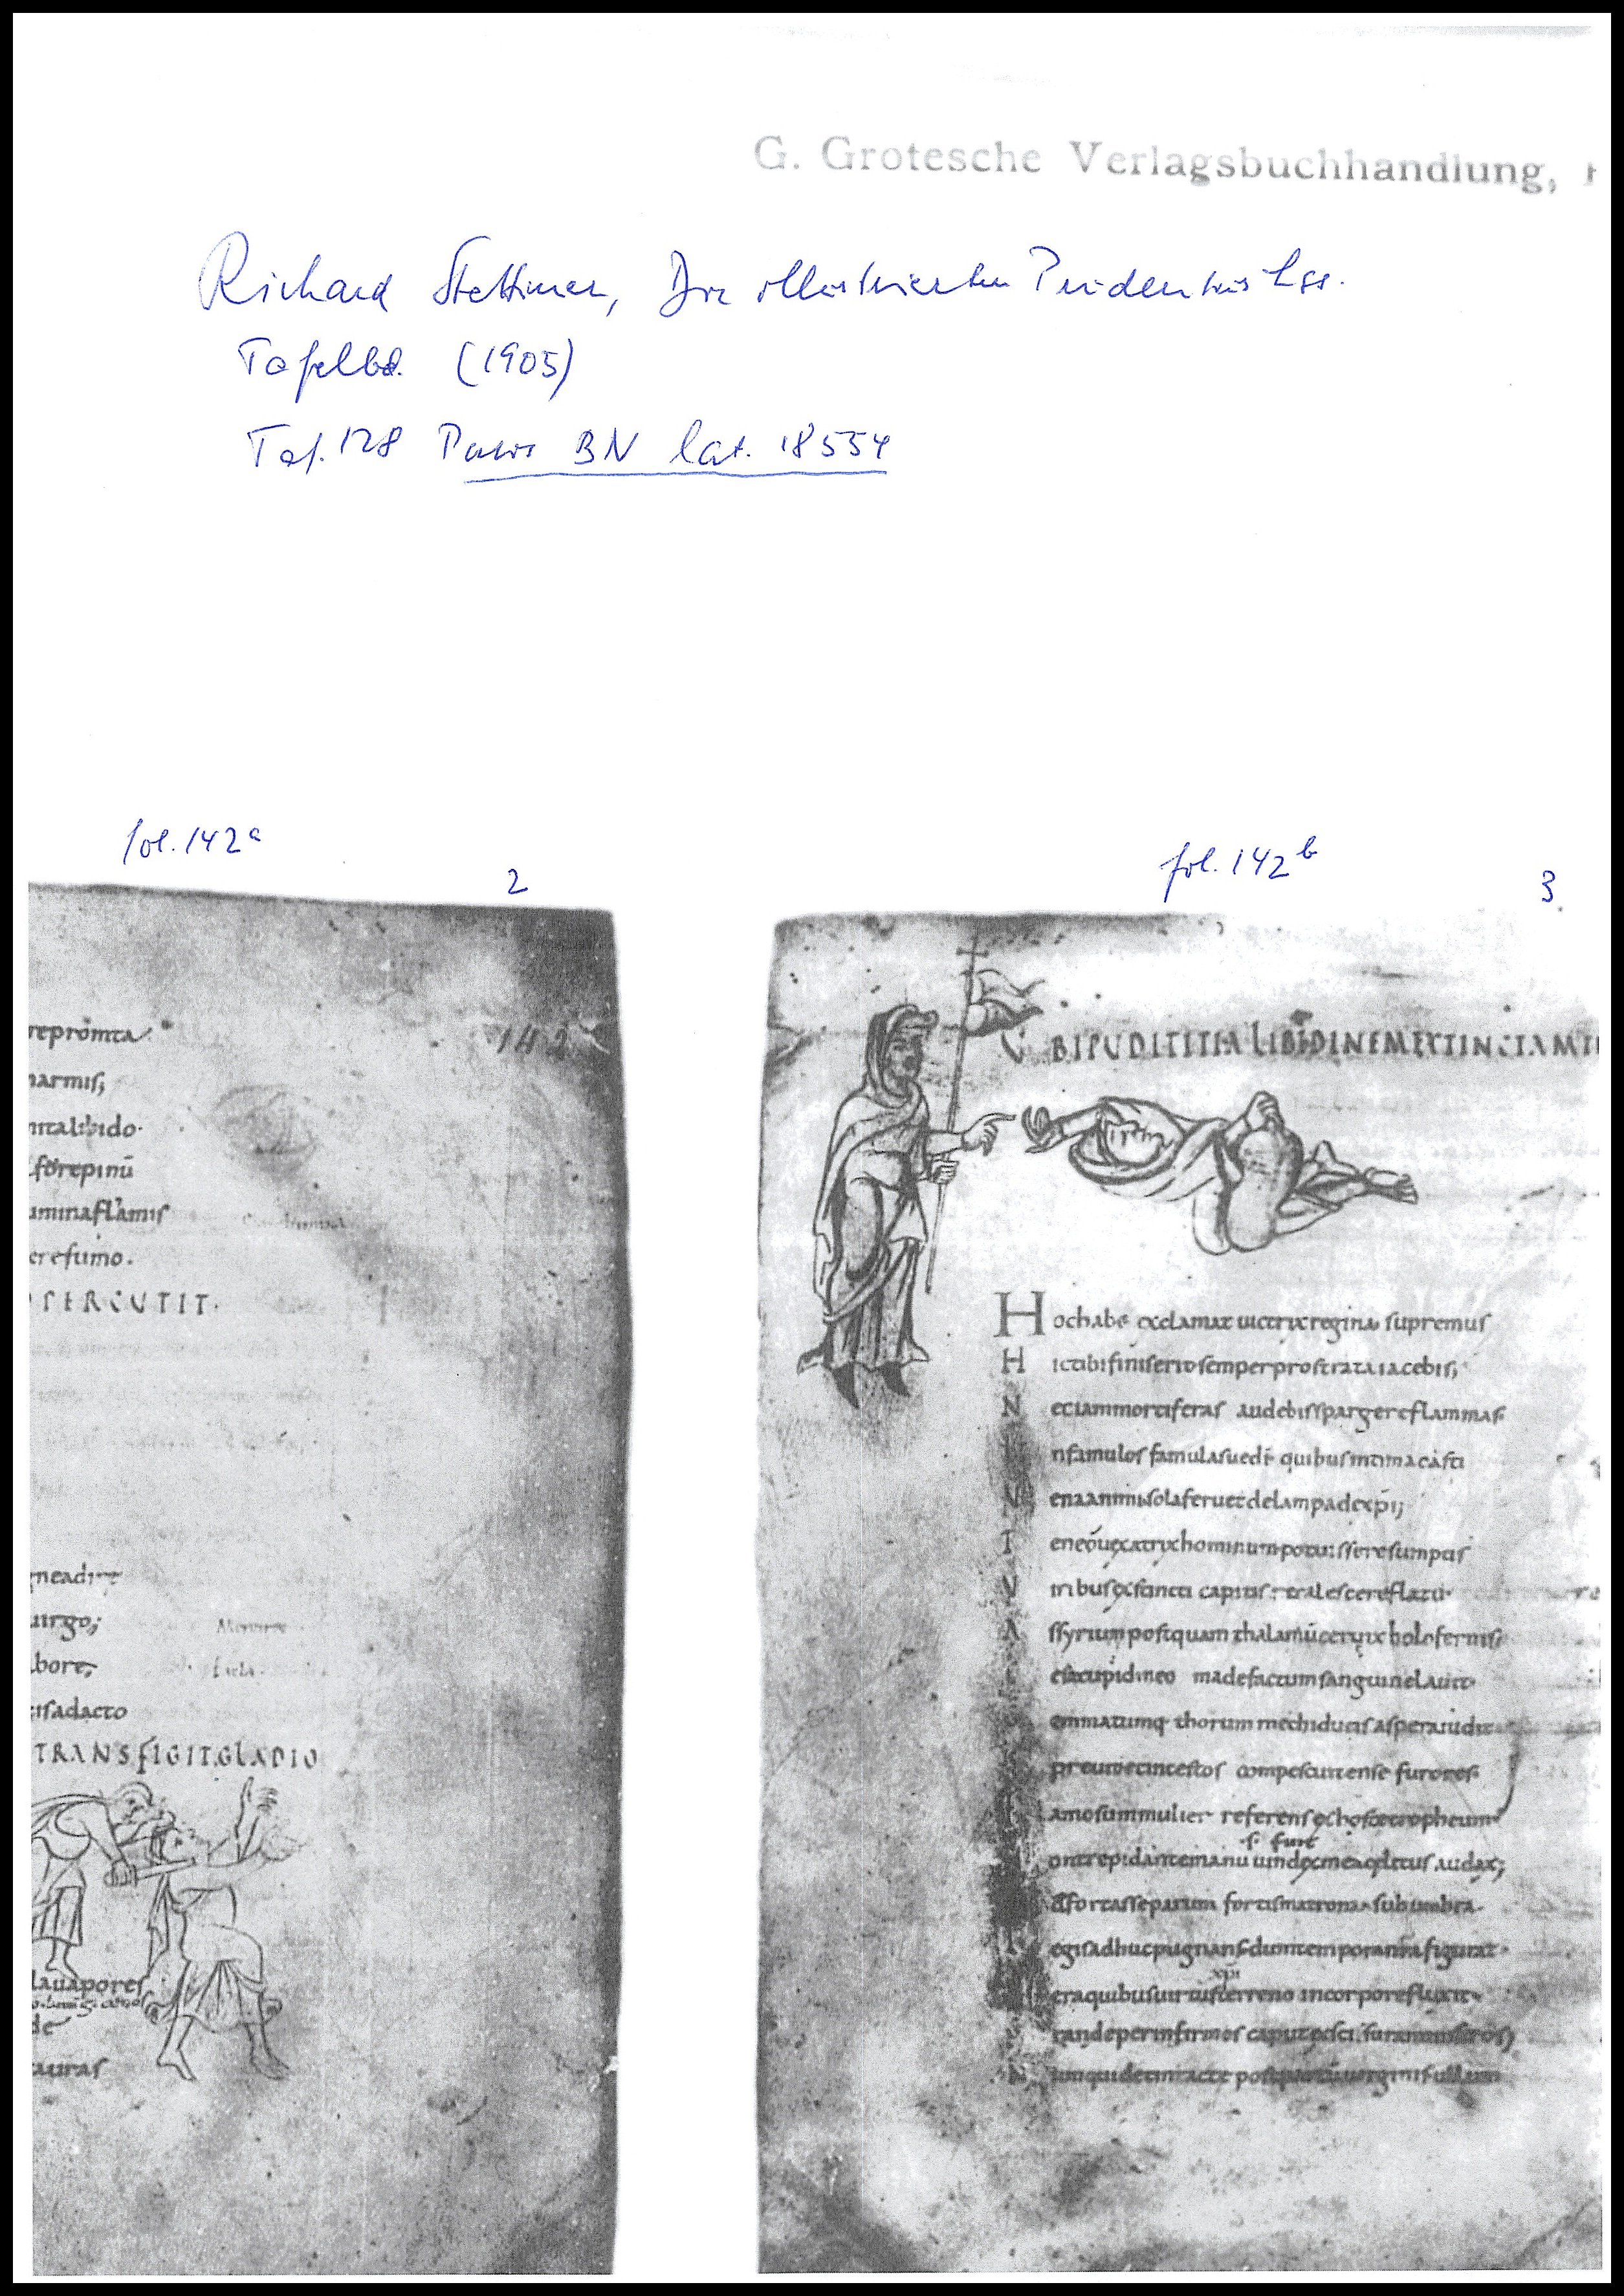 G. Grotesche Verlagsbuchhandlung,
Richard Stettiner, Die illustrierten Prudentius Hss.
Tafelbd. (1905)
Taf. 128 Paris BN lat. 18554
fol. 142a
2
repromta
142
narmis;
nitalibido.
sforepinū
uminaflāmis
erefumo.
PERCUTIT.
uirgo;
bore,
isadacto
TRANSFIGITGLADIO
lauapores
de
auras
fol. 142b
3
UBIPUDITITIALIBIDINEMEXTINCTAM
Hochabe exclamat uictrixregina supremus
Hictibifiniseritsemperprostrataiacebis;
Neciammortiferas audebisspargereflammas
nfamulos famulasuedi quibusintimacasti
enaanimisolaferuetdelampadexpi;
Teneóuexatrixhominumpotuisseresumptis
Viribusextincti capitis
Assyriumpostquam thalamūceruixholofernis
esacupidineo madefactumsanguinelauit
emmatumq thorum mechiducisasperaiudit
preuitetincestos compescuitense furores
amosummulier referensexhostetropheum
s. fuit
ontrepidantemanu uindexmeacelitus audax;
Atfortasseparum fortismatronasubumbra
egisadhucpugnansdumtemporanrafigurat
xpi
eraquibusuirtusterreno incorporefluxit
randeperinfirmos caput
umquidetintacte postpartūuirginisullum